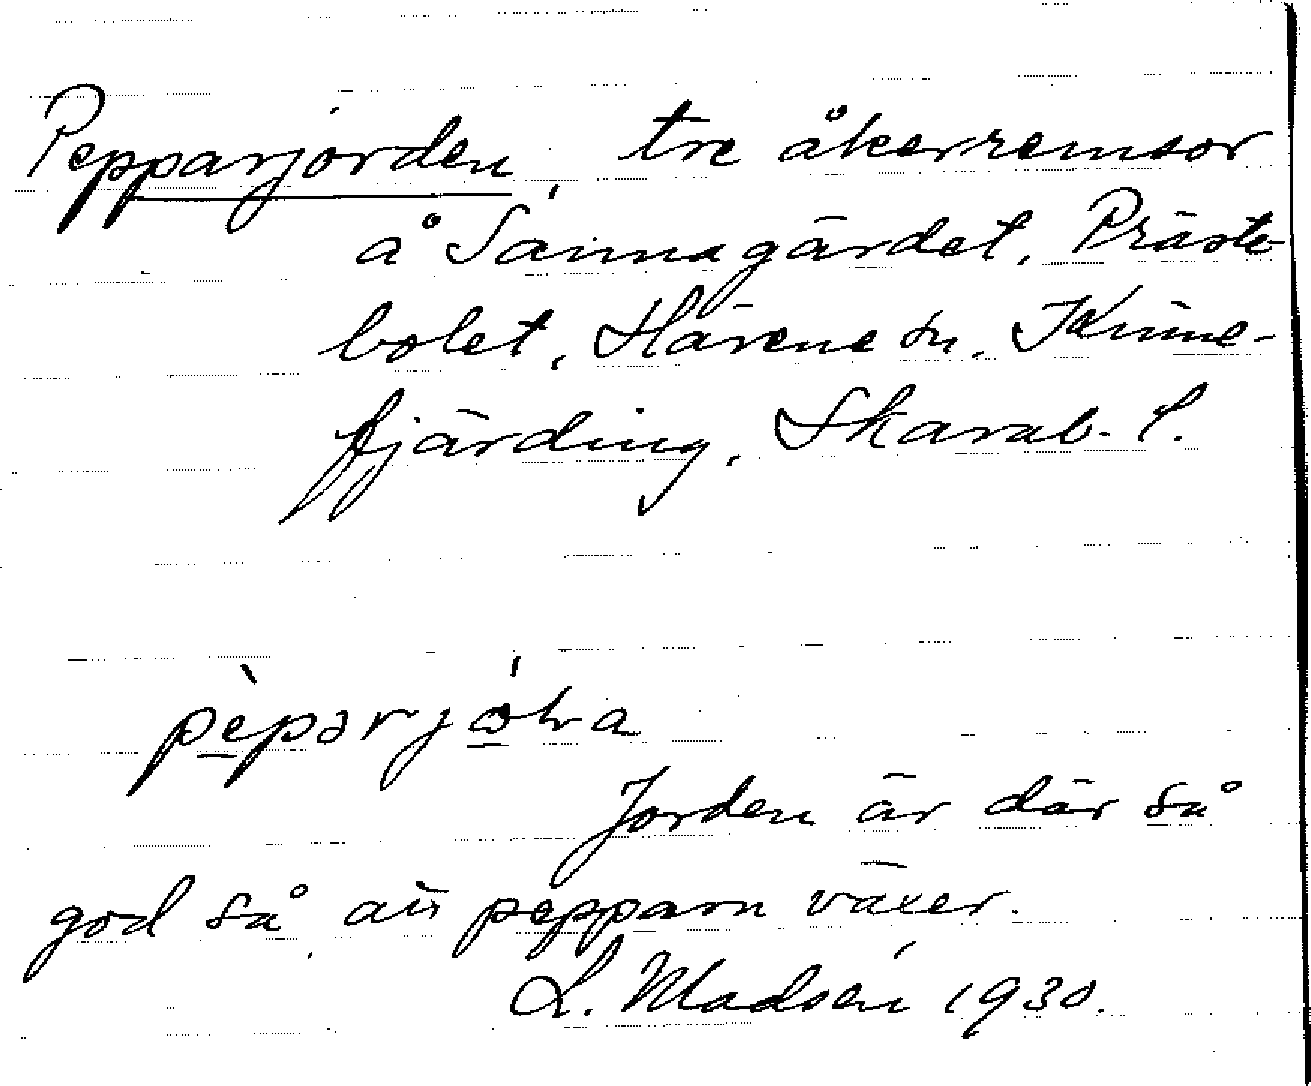 Pepparjorden, tre åkerremsor
å Sännagärdet, Präste-
bolet, Härene sn, Kinne-
fjärding, Skarab. l.
Jorden är där så
god så att pepparn växer.
L. Madsén 1930.